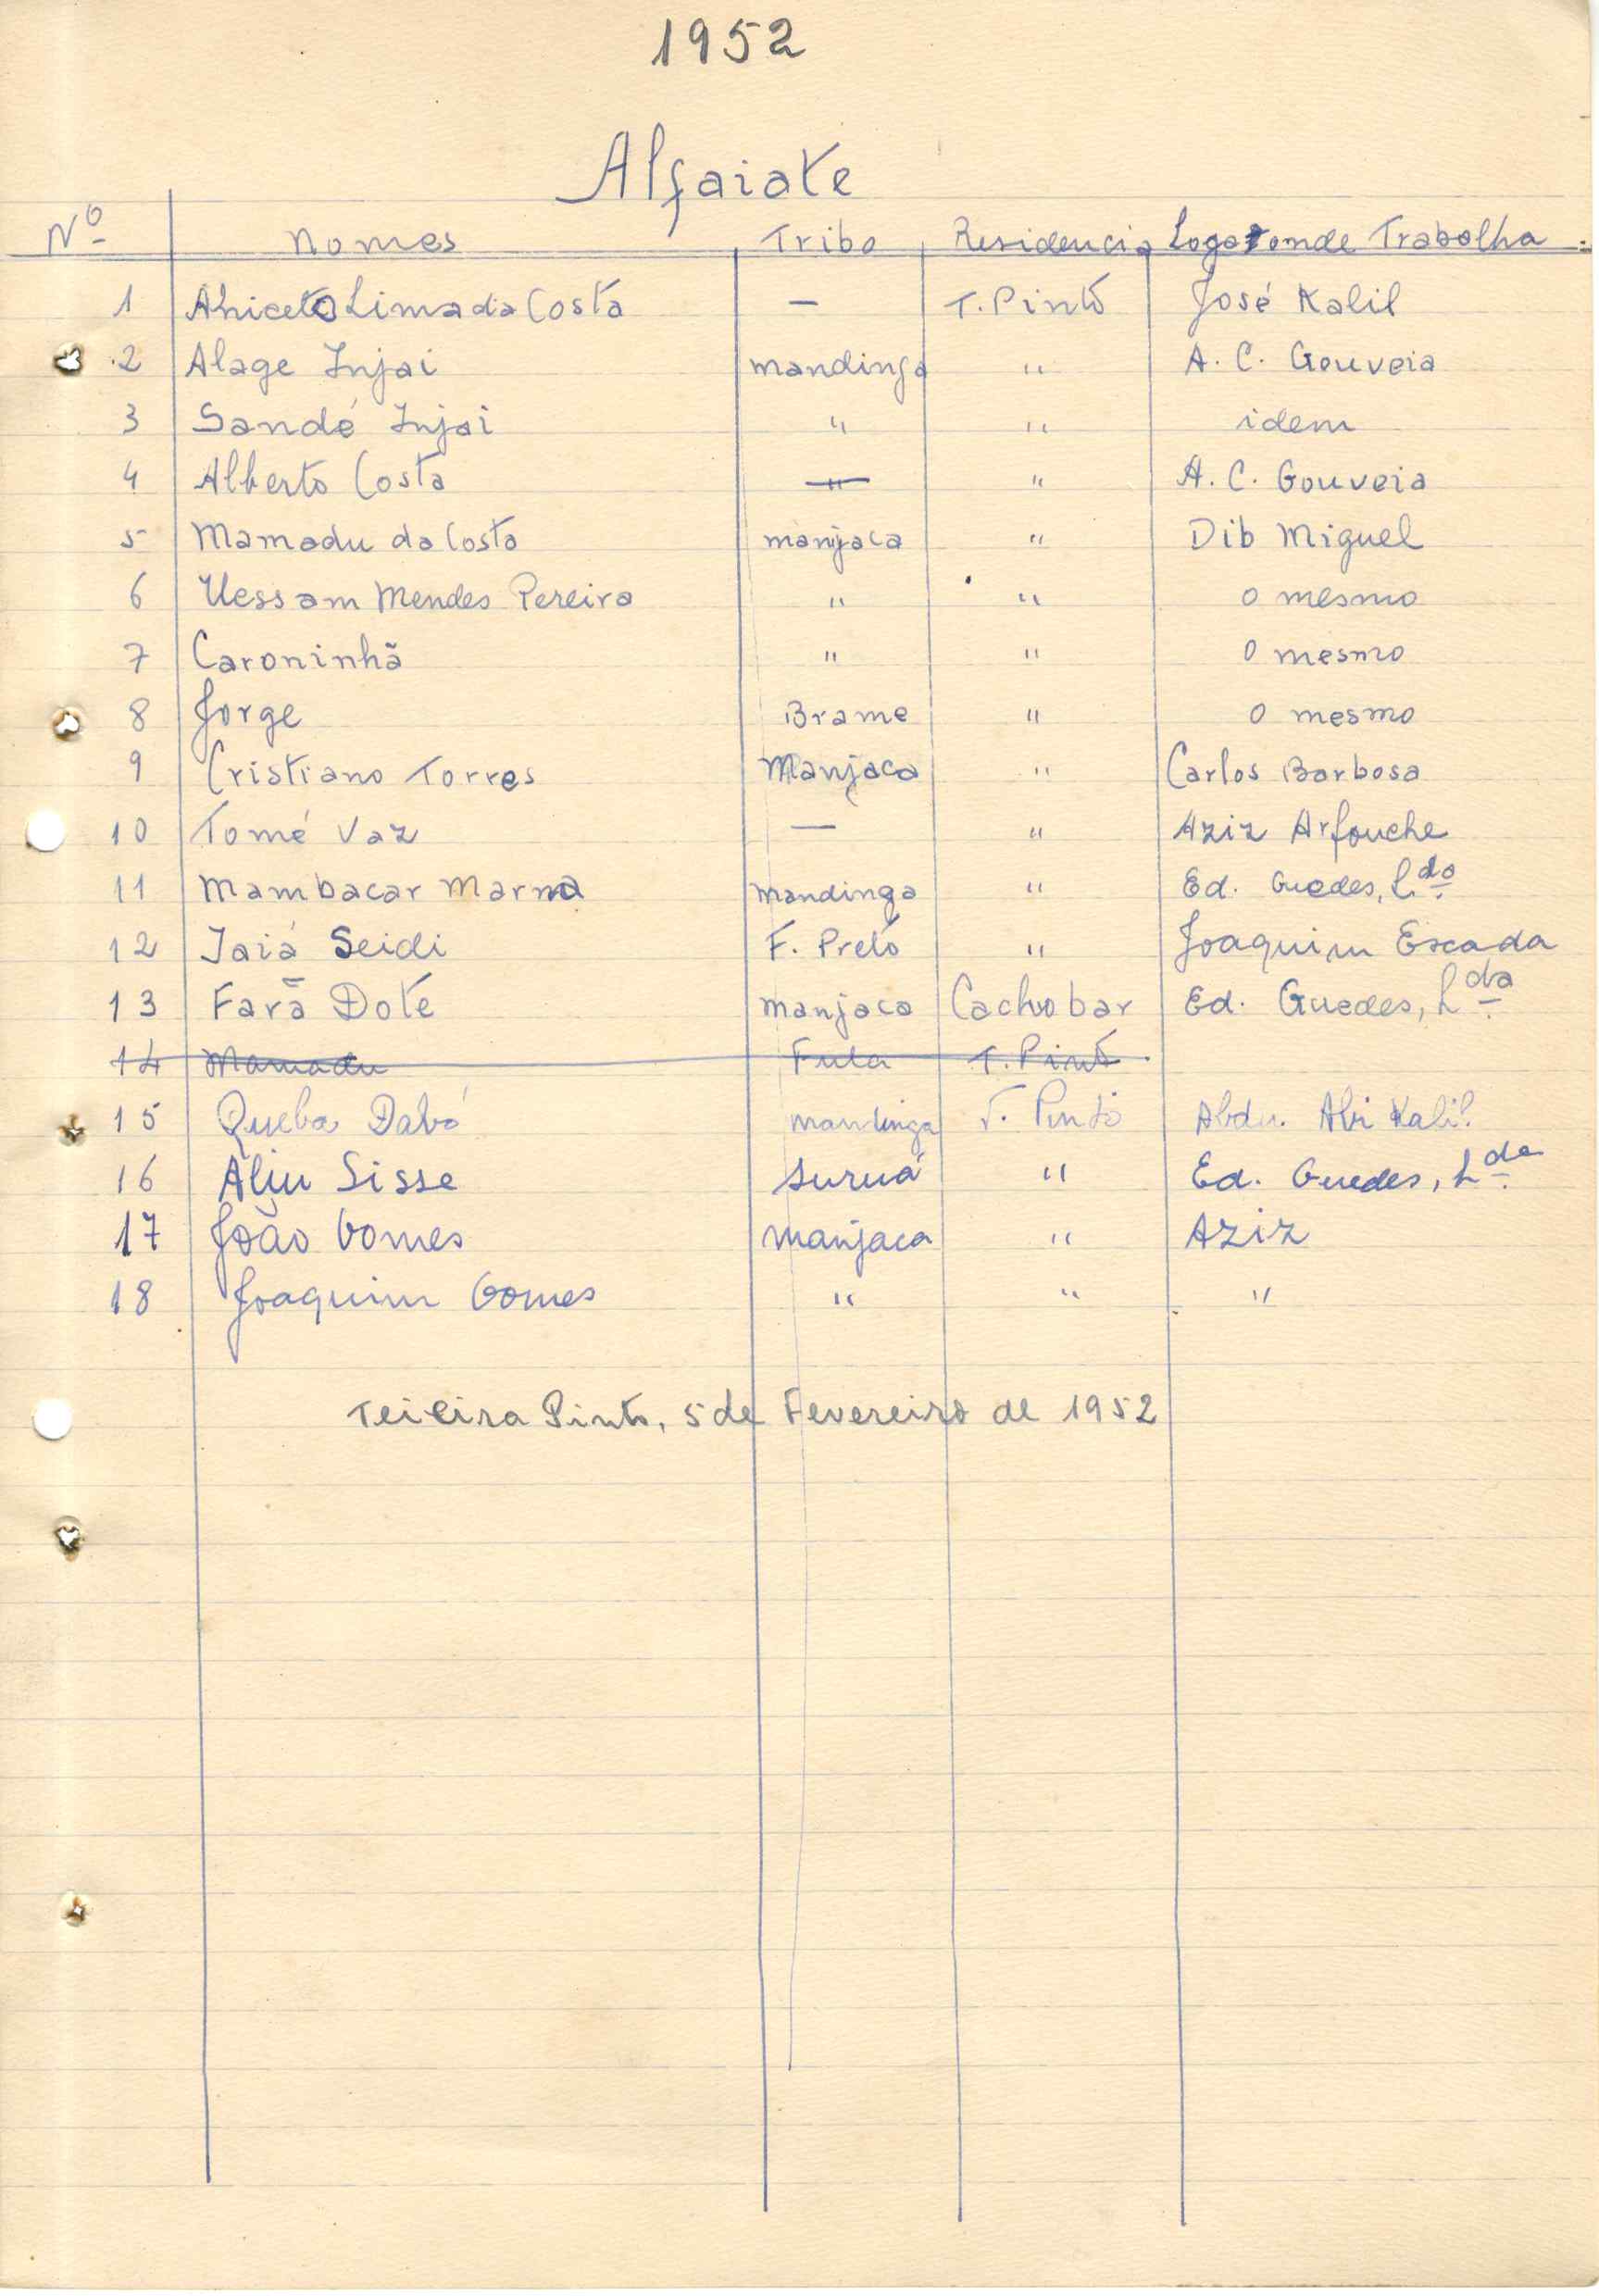 1952
Alfaiate
Nº Nomes Tribo Residencia Logar onde Trabalha
1 Aniceto Lima da Costa — T. Pinto José Kalil
2 Alage Injai mandinga " A. C. Gouveia
3 Sandé Injai " " idem
4 Alberto Costa — " A. C. Gouveia
5 Mamadu da Costa manjaca " Dib Miguel
6 Uessam Mendes Pereira " " o mesmo
7 Caroninhã " " o mesmo
8 Jorge Brame " o mesmo
9 Cristiano Torres Manjaca " Carlos Barbosa
10 Tomé Vaz — " Aziz Arfouche
11 Mambacar Marna mandinga " Ed. Guedes, Lda.
12 Iaiá Seidi F. Preto " Joaquim Escada
13 Farã Dote manjaca Cachobar Ed. Guedes, Lda.
14 Mamadu Fula T. Pinto
15 Queba Dabó mandinga T. Pinto Abdu. Abi Kalil
16 Aliu Sisse Suruá " Ed. Guedes, Lda.
17 João Gomes Manjaca " Aziz
18 Joaquim Gomes " " "
Teixeira Pinto, 5 de Fevereiro de 1952